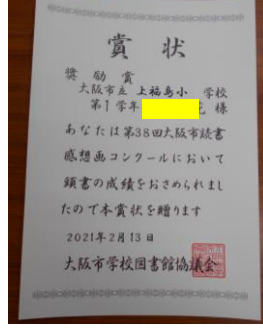 賞状
奨励賞
大阪市立 上福島小 学校
第1学年 花 様
あなたは第38回大阪市読書
感想画コンクールにおいて
頭書の成績をおさめられまし
たので本賞状を贈ります
2021年2月13日
大阪市学校図書館協議会